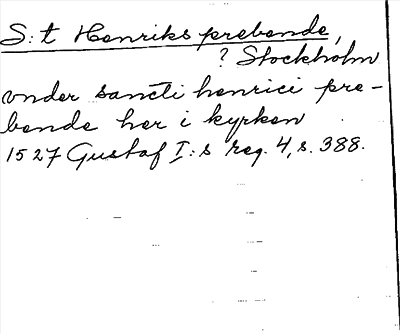 S:t Henriks prebende,
? Stockholm
vnder sancti henrici pre-
bende her i kyrken
1527 Gustaf I:s reg. 4, s. 388.